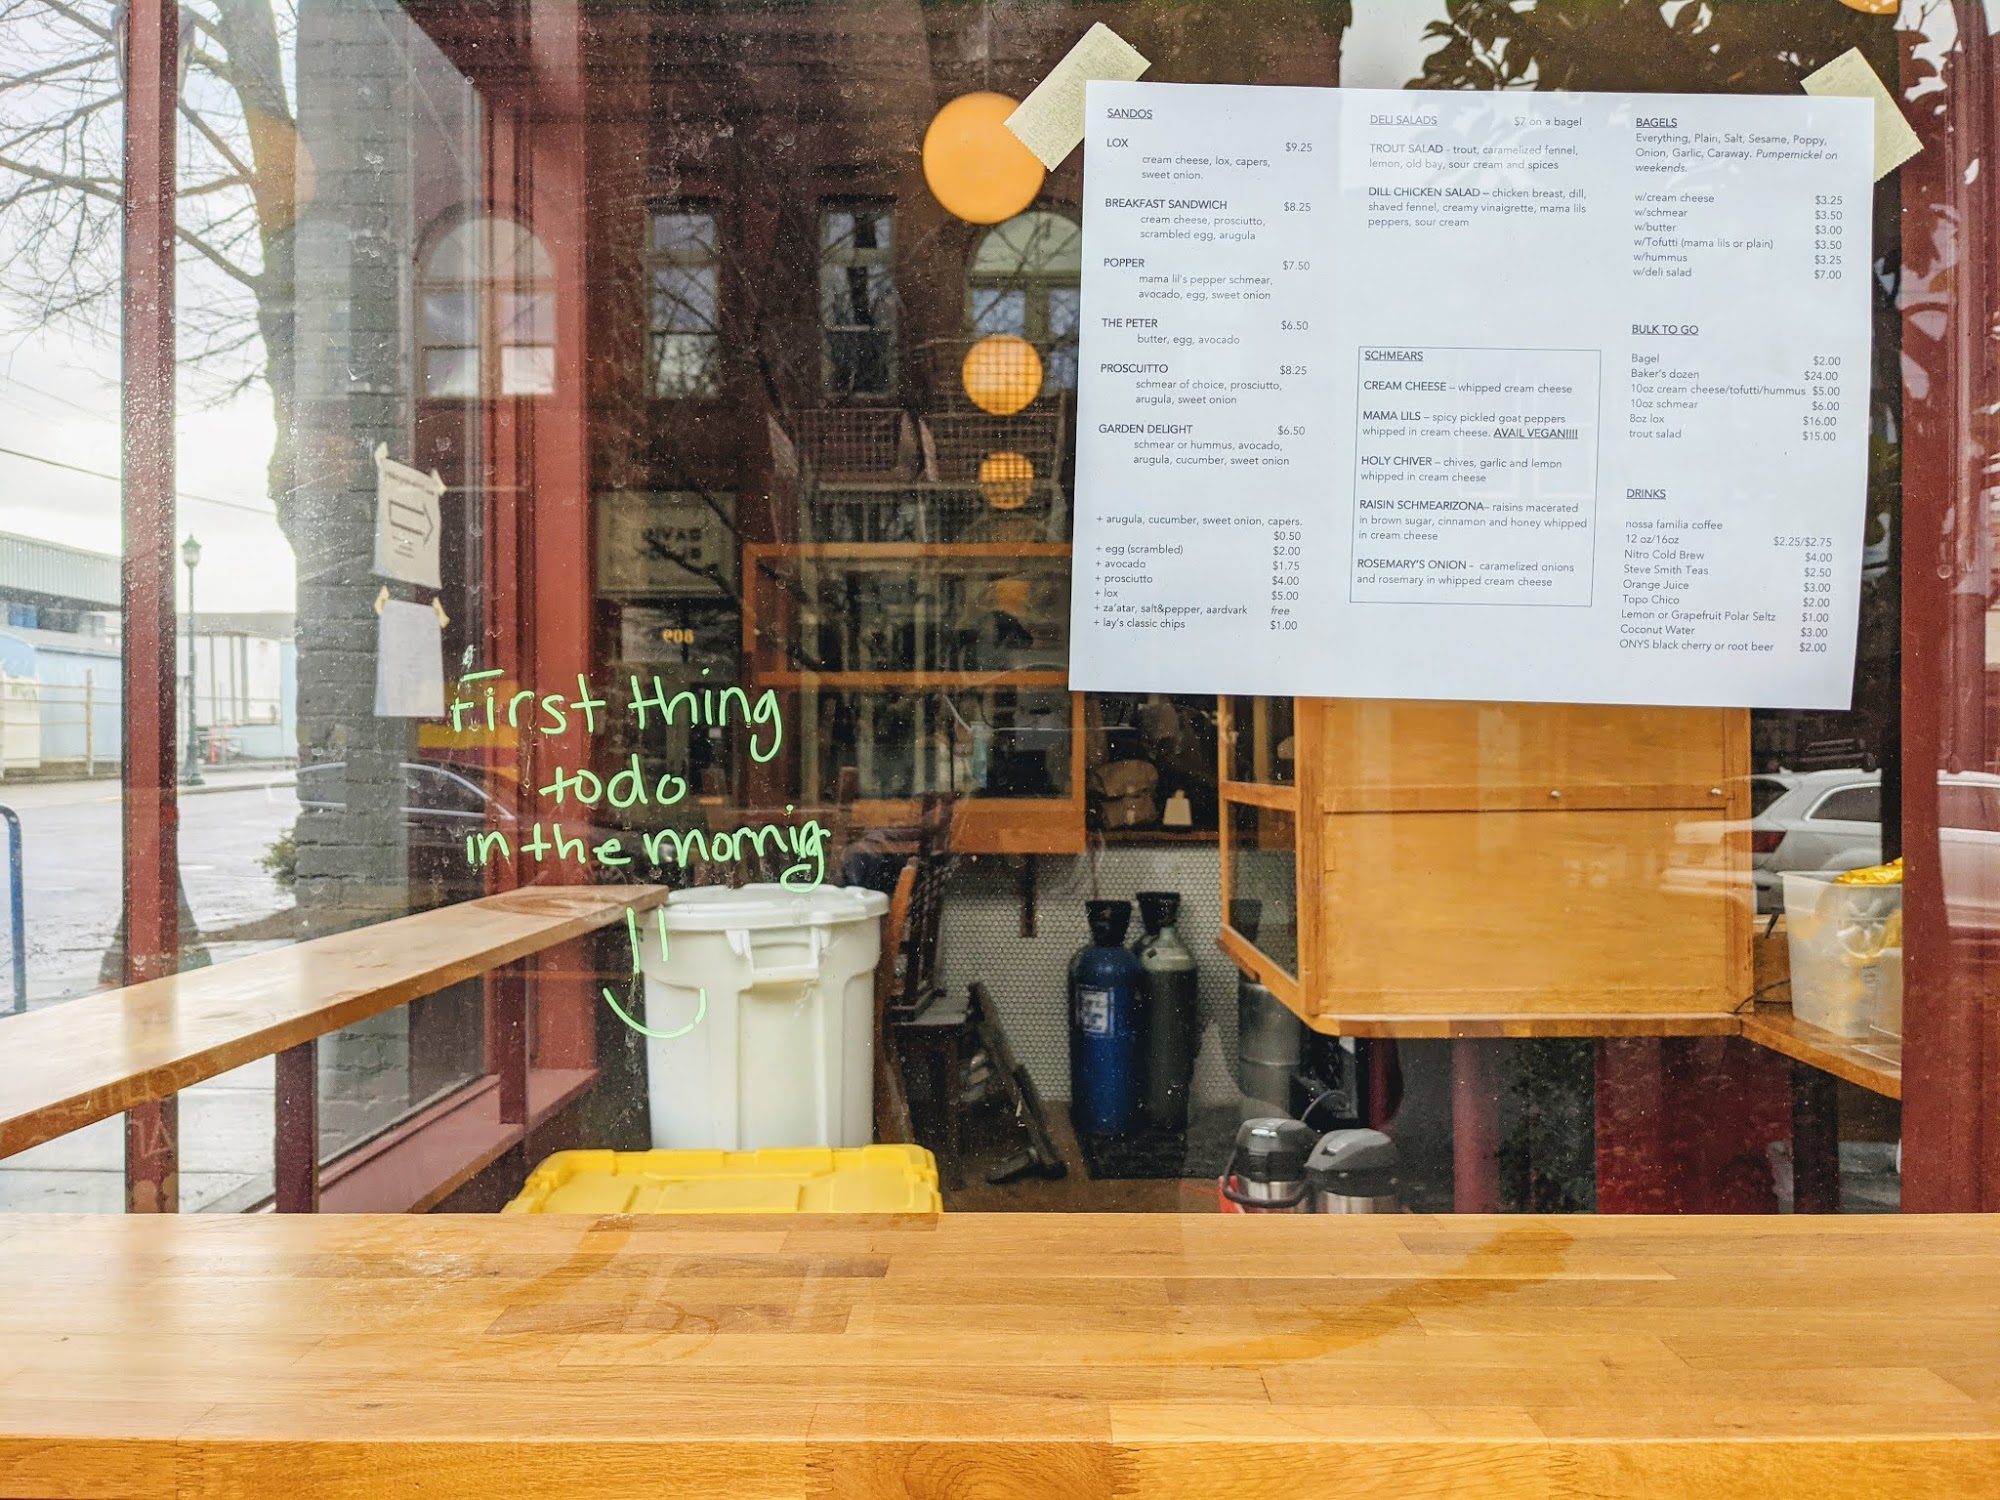 First thing
to do
in the mornig
SANDOS
LOX $9.25
cream cheese, lox, capers,
sweet onion.
BREAKFAST SANDWICH $8.25
cream cheese, prosciutto,
scrambled egg, arugula
POPPER $7.50
mama lil's pepper schmear,
avocado, egg, sweet onion
THE PETER $6.50
butter, egg, avocado
PROSCUITTO $8.25
schmear of choice, prosciutto,
arugula, sweet onion
GARDEN DELIGHT $6.50
schmear or hummus, avocado,
arugula, cucumber, sweet onion
+ arugula, cucumber, sweet onion, capers.
$0.50
+ egg (scrambled) $2.00
+ avocado $1.75
+ prosciutto $4.00
+ lox $5.00
+ za'atar, salt&pepper, aardvark free
+ lay's classic chips $1.00
DELI SALADS $7 on a bagel
TROUT SALAD - trout, caramelized fennel,
lemon, old bay, sour cream and spices
DILL CHICKEN SALAD – chicken breast, dill,
shaved fennel, creamy vinaigrette, mama lils
peppers, sour cream
SCHMEARS
CREAM CHEESE – whipped cream cheese
MAMA LILS – spicy pickled goat peppers
whipped in cream cheese. AVAIL VEGAN!!!!
HOLY CHIVER – chives, garlic and lemon
whipped in cream cheese
RAISIN SCHMEARIZONA– raisins macerated
in brown sugar, cinnamon and honey whipped
in cream cheese
ROSEMARY'S ONION - caramelized onions
and rosemary in whipped cream cheese
BAGELS
Everything, Plain, Salt, Sesame, Poppy,
Onion, Garlic, Caraway. Pumpernickel on
weekends.
w/cream cheese $3.25
w/schmear $3.50
w/butter $3.00
w/Tofutti (mama lils or plain) $3.50
w/hummus $3.25
w/deli salad $7.00
BULK TO GO
Bagel $2.00
Baker's dozen $24.00
10oz cream cheese/tofutti/hummus $5.00
10oz schmear $6.00
8oz lox $16.00
trout salad $15.00
DRINKS
nossa familia coffee
12 oz/16oz $2.25/$2.75
Nitro Cold Brew $4.00
Steve Smith Teas $2.50
Orange Juice $3.00
Topo Chico $2.00
Lemon or Grapefruit Polar Seltz $1.00
Coconut Water $3.00
ONYS black cherry or root beer $2.00